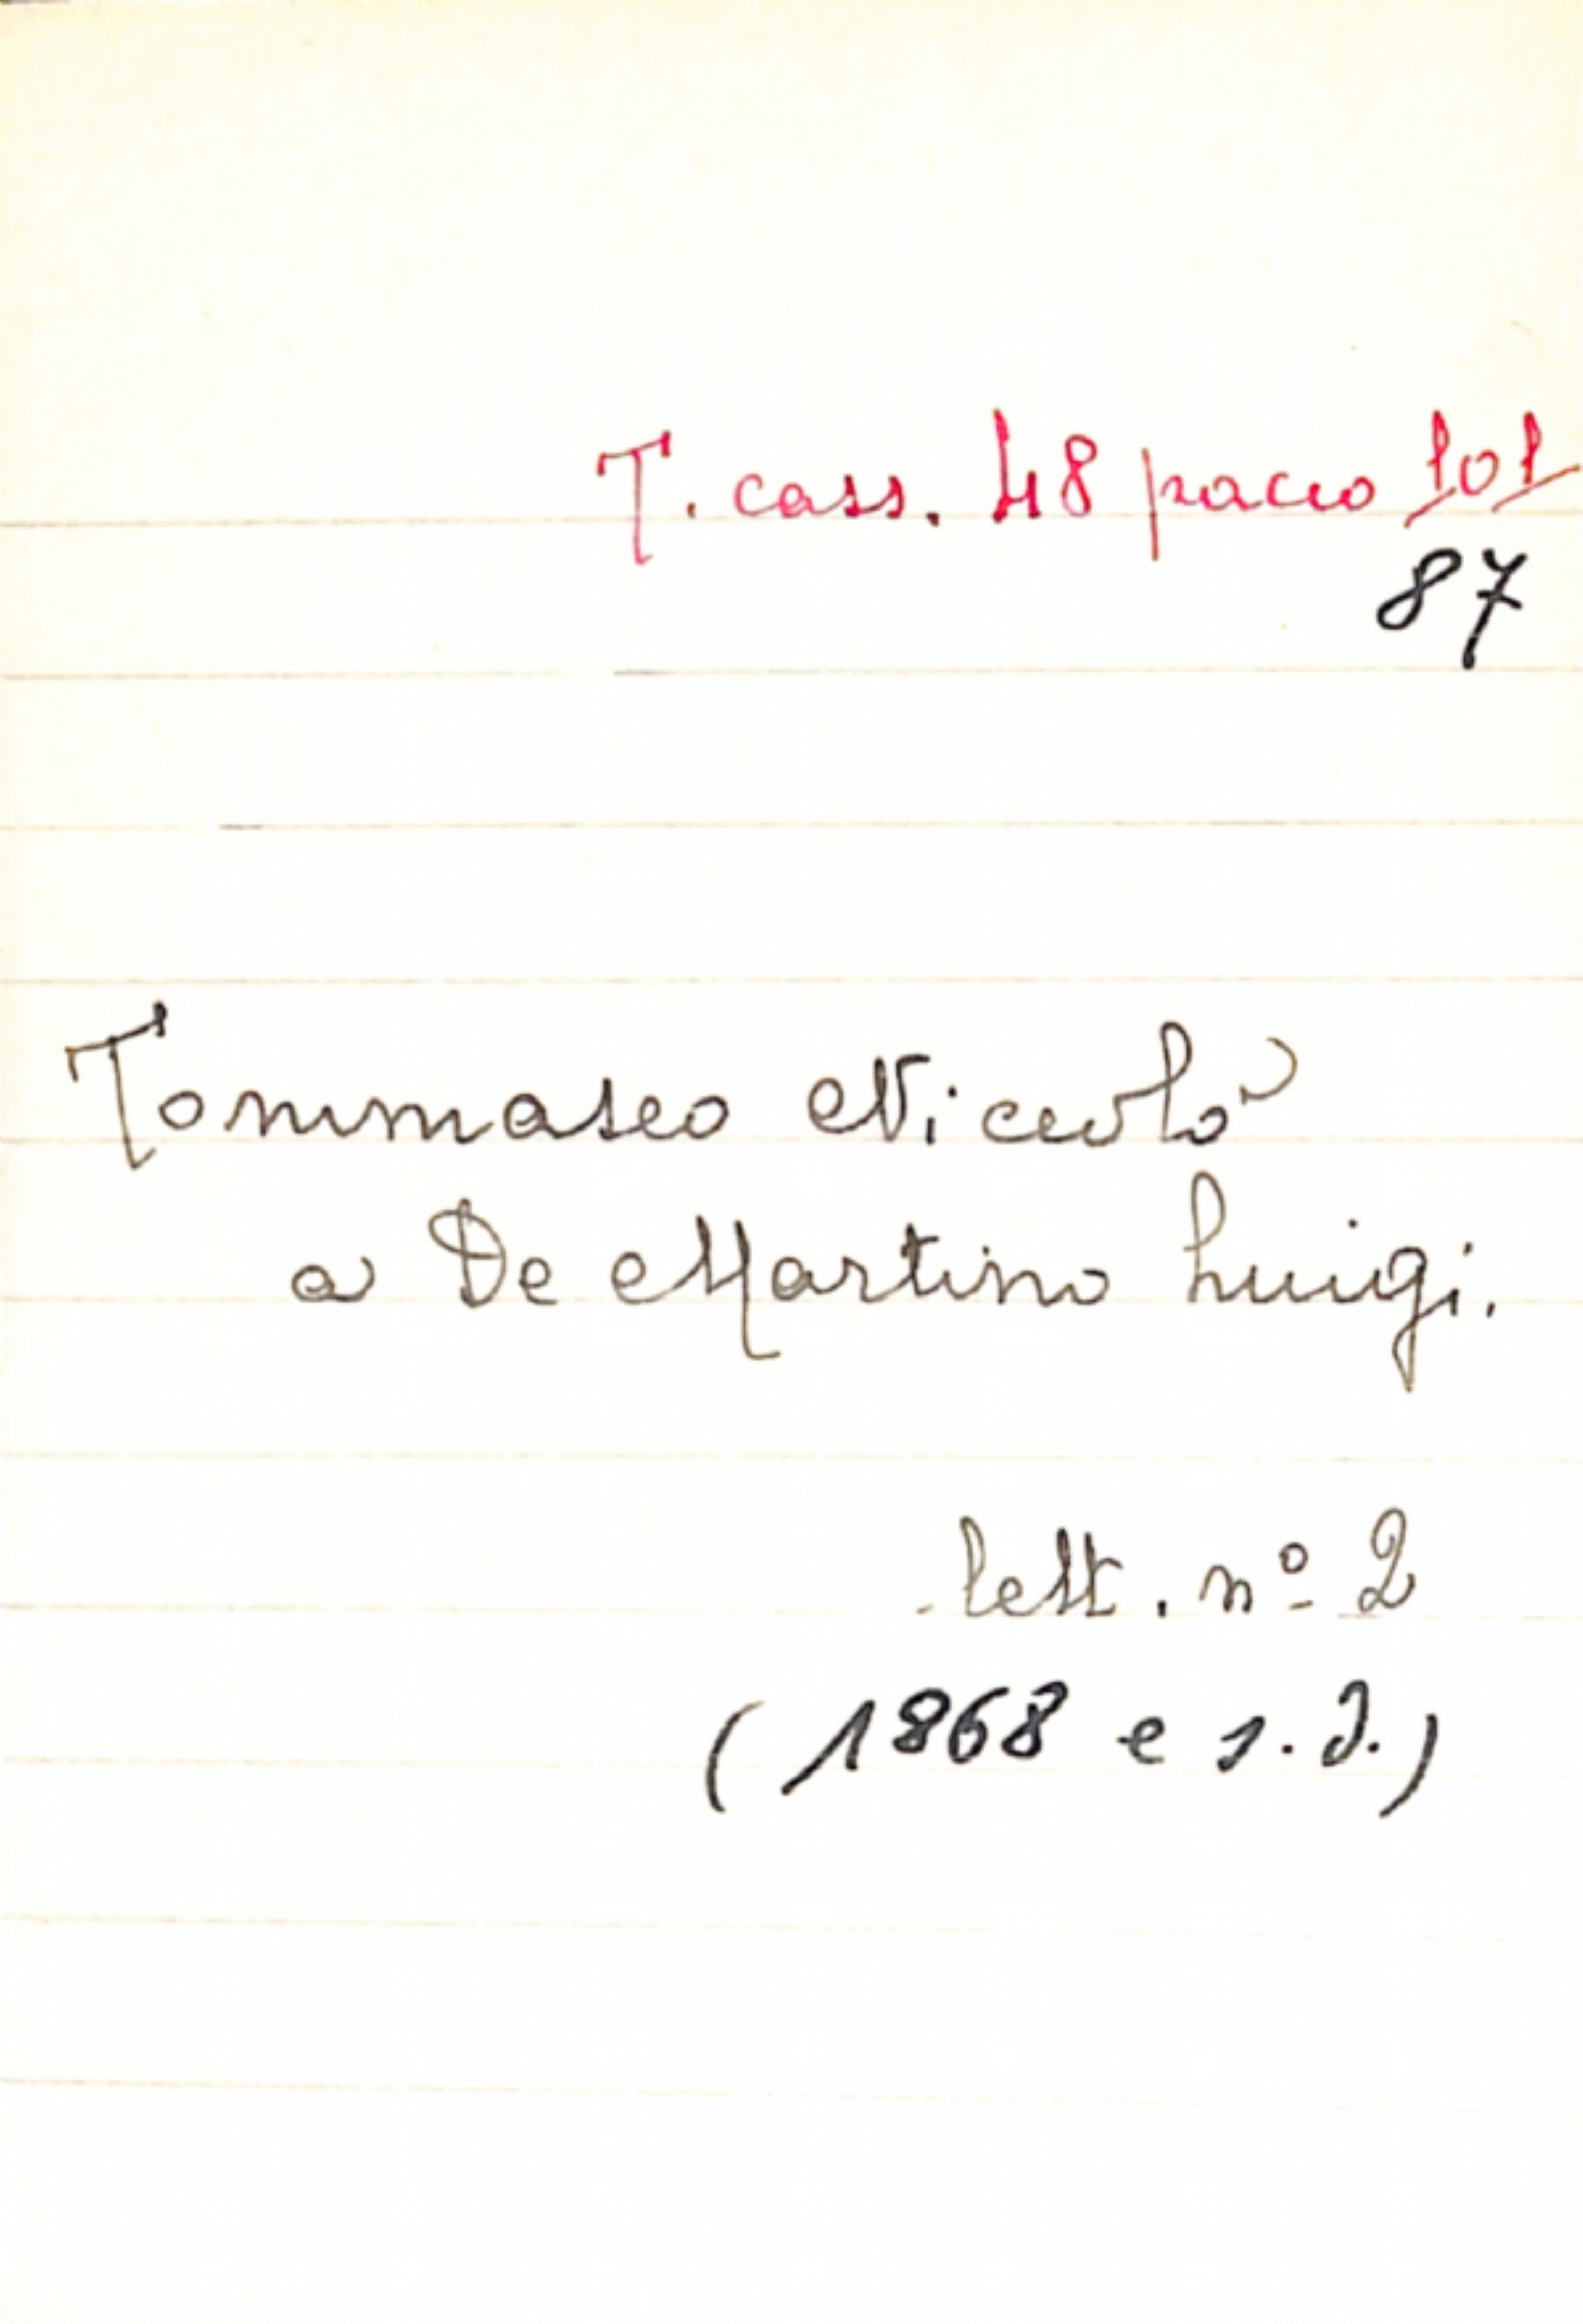 T. cass. 48 pacco 101
87
Tommaseo Niccolò
a De Martino Luigi.
lett. nº 2
(1868 e s.d.)